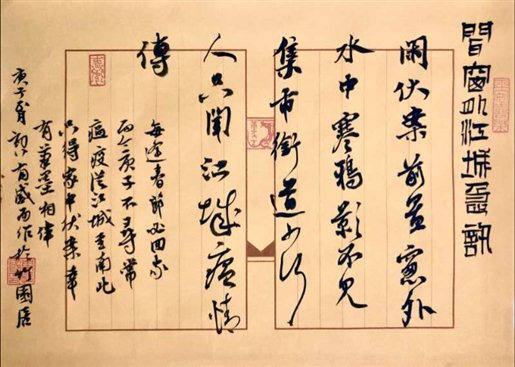 窗江城急訊
閑伏案前窗外
水中寒鴉影不見
集市街道少行
人只聞江城瘟情
傳
每逢春節必回家
而今庚子不尋常
瘟疫從江城至南北
只得家中伏案幸
有墨相伴
庚子月初八有感而作於竹園居